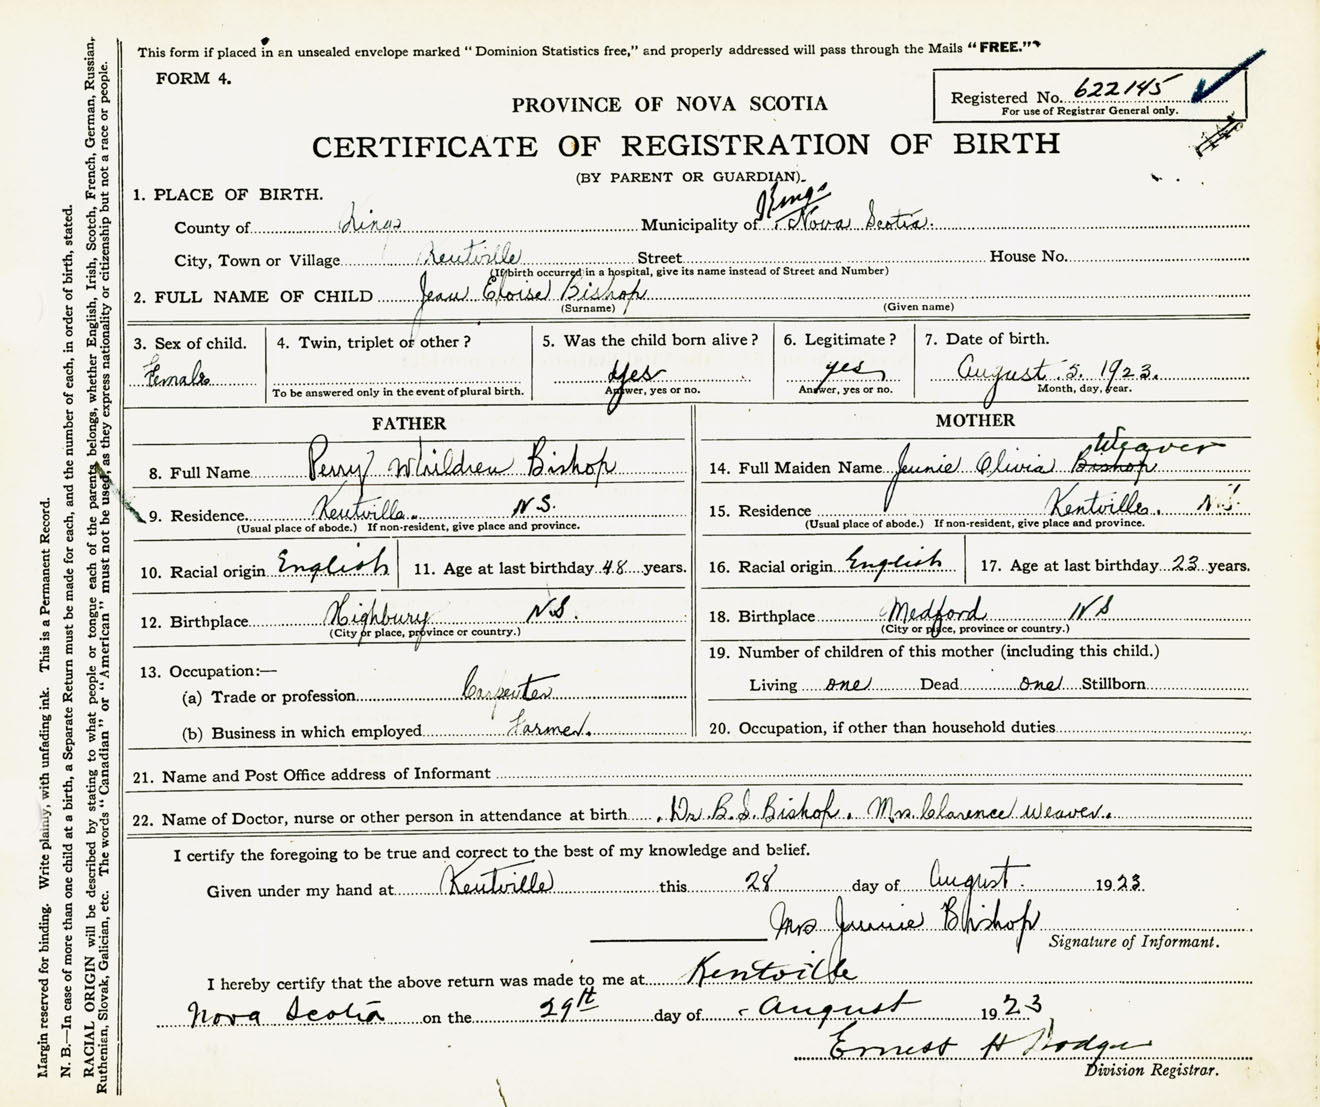 This form if placed in an unsealed envelope marked "Dominion Statistics free," and properly addressed will pass through the Mails "FREE."
FORM 4.
Registered No. 622145
For use of Registrar General only.
PROVINCE OF NOVA SCOTIA
CERTIFICATE OF REGISTRATION OF BIRTH
(BY PARENT OR GUARDIAN).
1. PLACE OF BIRTH.
Kings
County of Kings Municipality of Nova Scotia.
City, Town or Village Kentville Street House No.
(If birth occurred in a hospital, give its name instead of Street and Number)
2. FULL NAME OF CHILD Jean Eloise Bishop
(Surname) (Given name)
3. Sex of child. 4. Twin, triplet or other? 5. Was the child born alive? 6. Legitimate? 7. Date of birth.
Female yes yes August 5. 1923.
To be answered only in the event of plural birth. Answer, yes or no. Answer, yes or no. Month, day, year.
FATHER
8. Full Name Perry Whildren Bishop
9. Residence Kentville. N.S.
(Usual place of abode.) If non-resident, give place and province.
10. Racial origin English 11. Age at last birthday 48 years.
12. Birthplace Highbury N.S.
(City or place, province or country.)
13. Occupation:—
(a) Trade or profession Carpenter
(b) Business in which employed Farmer.
MOTHER
Weaver
14. Full Maiden Name Jennie Olivia Bishop
15. Residence Kentville. N.S.
(Usual place of abode.) If non-resident, give place and province.
16. Racial origin English 17. Age at last birthday 23 years.
18. Birthplace Medford NS
(City or place, province or country.)
19. Number of children of this mother (including this child.)
Living one Dead one Stillborn
20. Occupation, if other than household duties
21. Name and Post Office address of Informant
22. Name of Doctor, nurse or other person in attendance at birth Dr. B.S. Bishop. Mrs. Clarence Weaver.
I certify the foregoing to be true and correct to the best of my knowledge and belief.
Given under my hand at Kentville this 28 day of August. 1923.
Mrs Jennie Bishop
Signature of Informant.
I hereby certify that the above return was made to me at Kentville
Nova Scotia on the 29th day of August 1923
Ernest H
Division Registrar.
Margin reserved for binding. Write plainly, with unfading ink. This is a Permanent Record.
N. B.—In case of more than one child at a birth, a Separate Return must be made for each, and the number of each, in order of birth, stated.
RACIAL ORIGIN will be described by stating to what people or tongue each of the parents belongs, whether English, Irish, Scotch, French, German, Russian,
Ruthenian, Slovak, Galician, etc. The words "Canadian" or "American" must not be used, as they express nationality or citizenship but not a race or people.